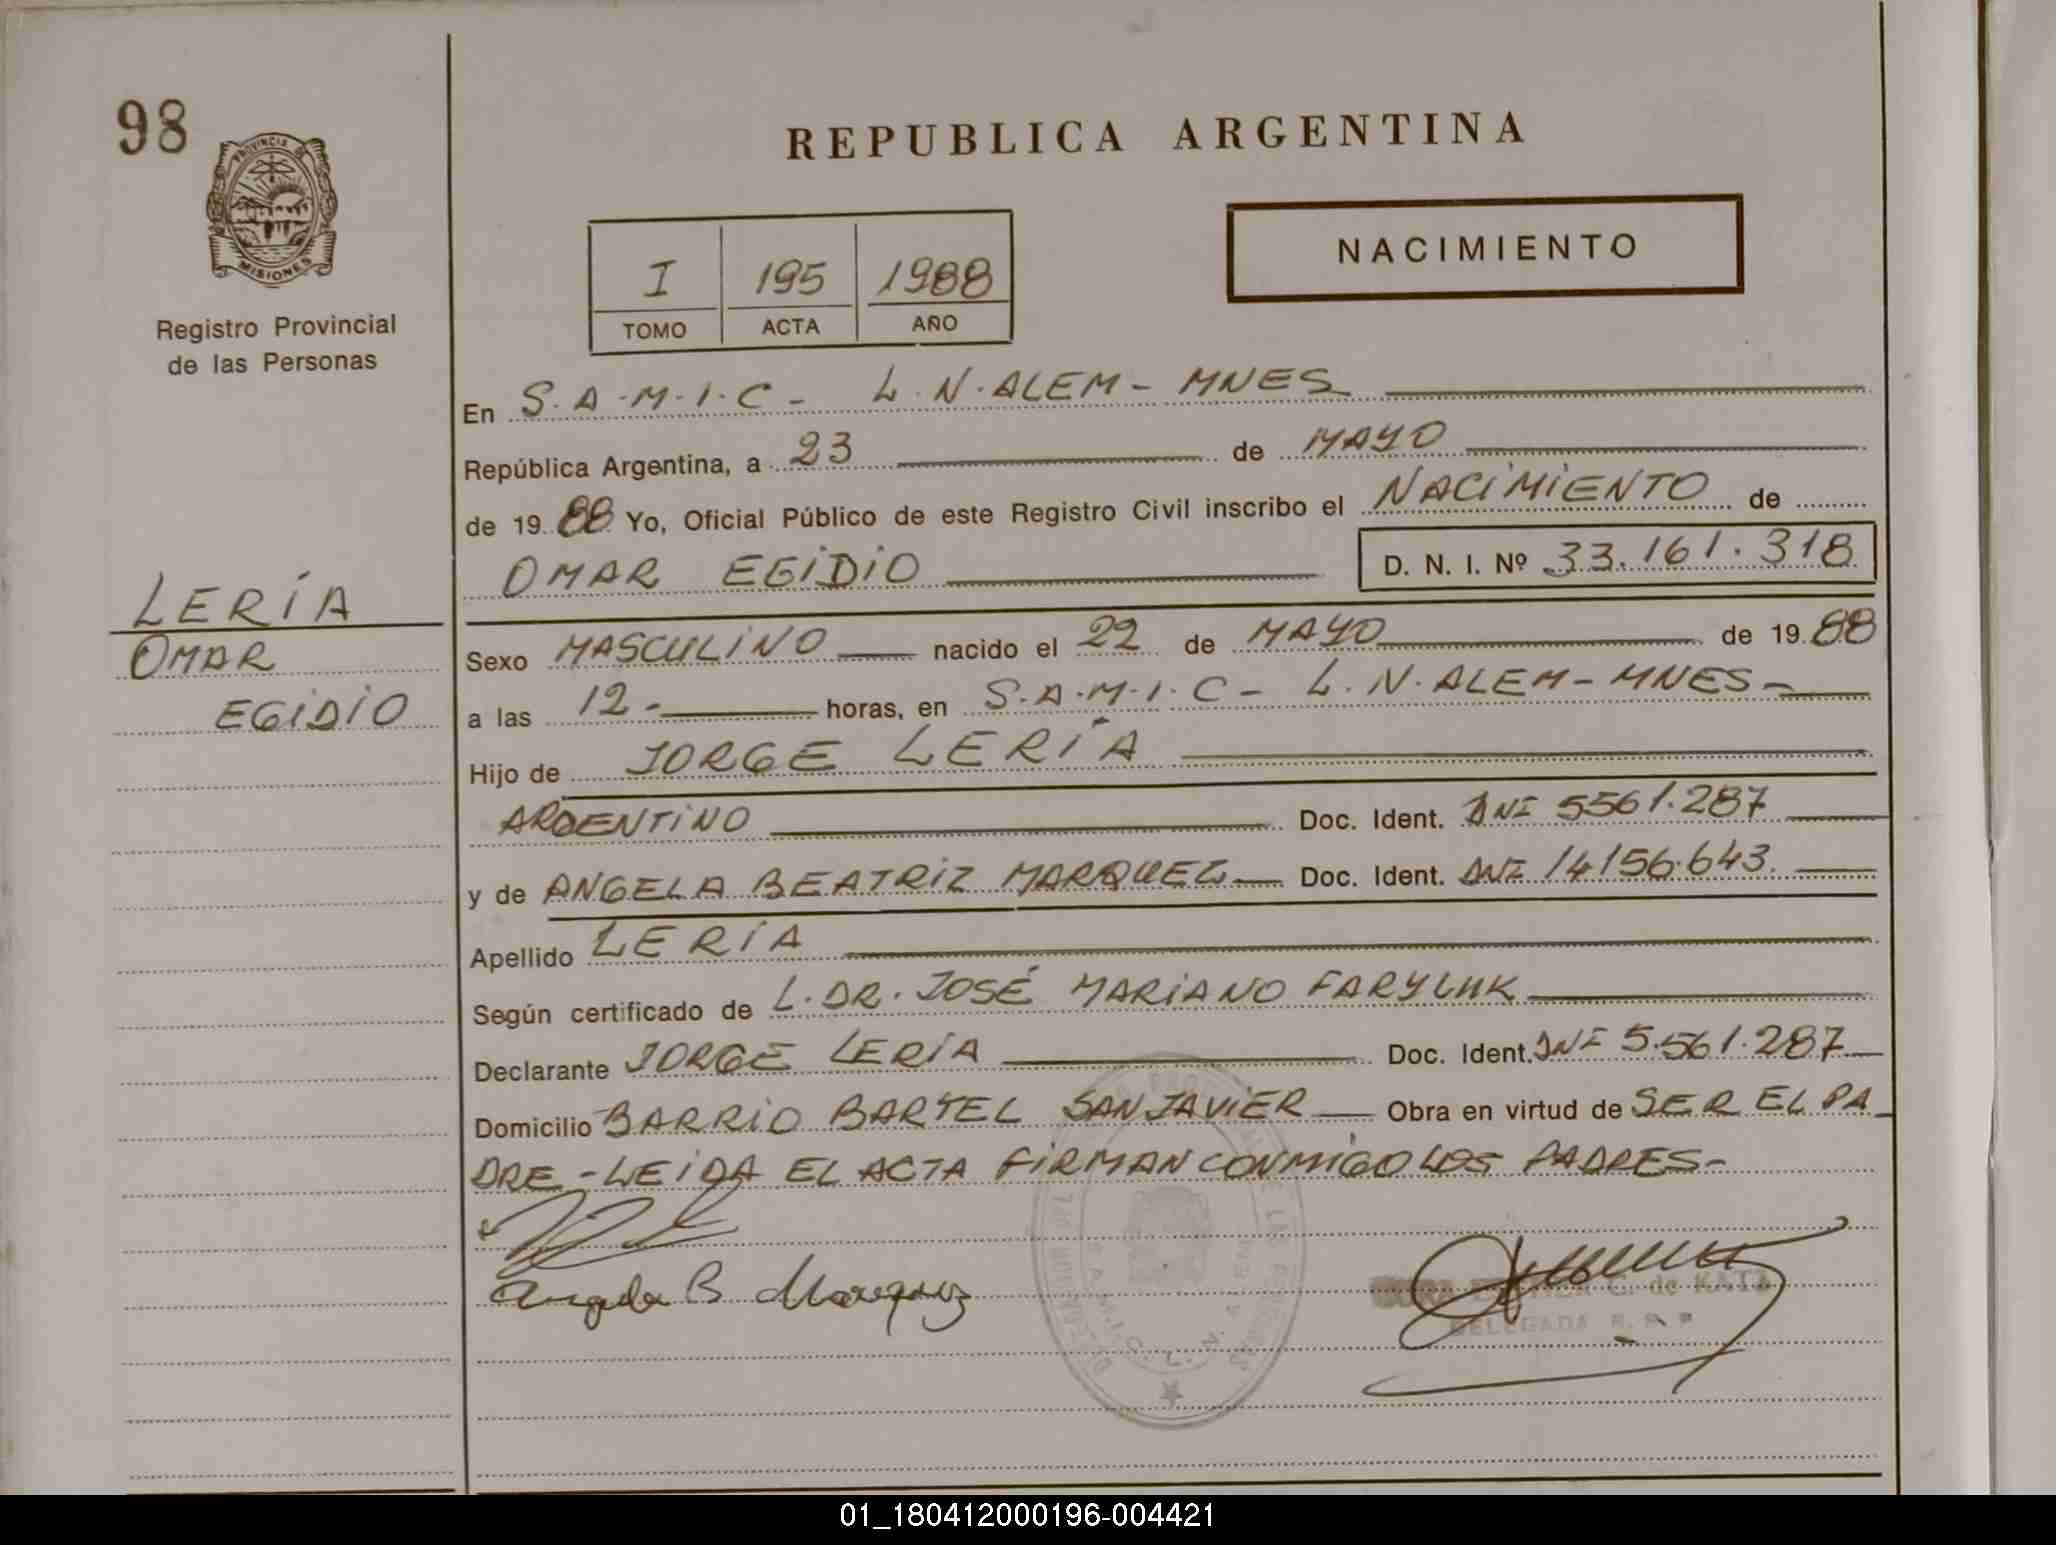 98
REPUBLICA ARGENTINA
PROVINCIA DE
MISIONES
Registro Provincial
de las Personas
I 195 1988
TOMO ACTA AÑO
NACIMIENTO
En S.A.M.I.C - L.N.ALEM - MNES
República Argentina, a 23 de MAYO
de 19 88 Yo, Oficial Público de este Registro Civil inscribo el NACIMIENTO de
OMAR EGIDIO D. N. I. Nº 33.161.318
LERÍA
OMAR
EGIDIO
Sexo MASCULINO nacido el 22 de MAYO de 19 88
a las 12.- horas, en S.A.M.I.C - L.N.ALEM - MNES -
Hijo de JORGE LERÍA
ARGENTINO Doc. Ident. DNI 5561.287
y de ANGELA BEATRIZ MARQUEZ Doc. Ident. DNI 14156.643.
Apellido LERÍA
Según certificado de L. DR. JOSÉ MARIANO FARYLUK
Declarante JORGE LERÍA Doc. Ident. DNI 5.561.287
Domicilio BARRIO BARTEL SAN JAVIER Obra en virtud de SER EL PA
DRE - LEIDA EL ACTA FIRMAN CONMIGO LOS PADRES -
Angela B Marquez
C. de KATZ
DELEGADA R. P. P
01_180412000196-004421